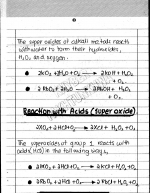 The super oxides of alkali metals reacts
with water to form their hydroxides,
H₂O₂ and oxygen.
2KO₂ + 2H₂O → 2KOH + H₂O₂ + O₂
2RbO₂ + 2H₂O → 2RbOH + H₂O₂ + O₂
Reaction with Acids (super oxide)
2KO₂ + 2HCl → 2KCl + H₂O₂ + O₂
The superoxides of group 1 reacts with
acids (HCl) in the following way,
2KO₂ + 2HCl → 2KCl + H₂O₂ + O₂
2RbO₂ + 2HCl → 2RbCl + H₂O₂ + O₂